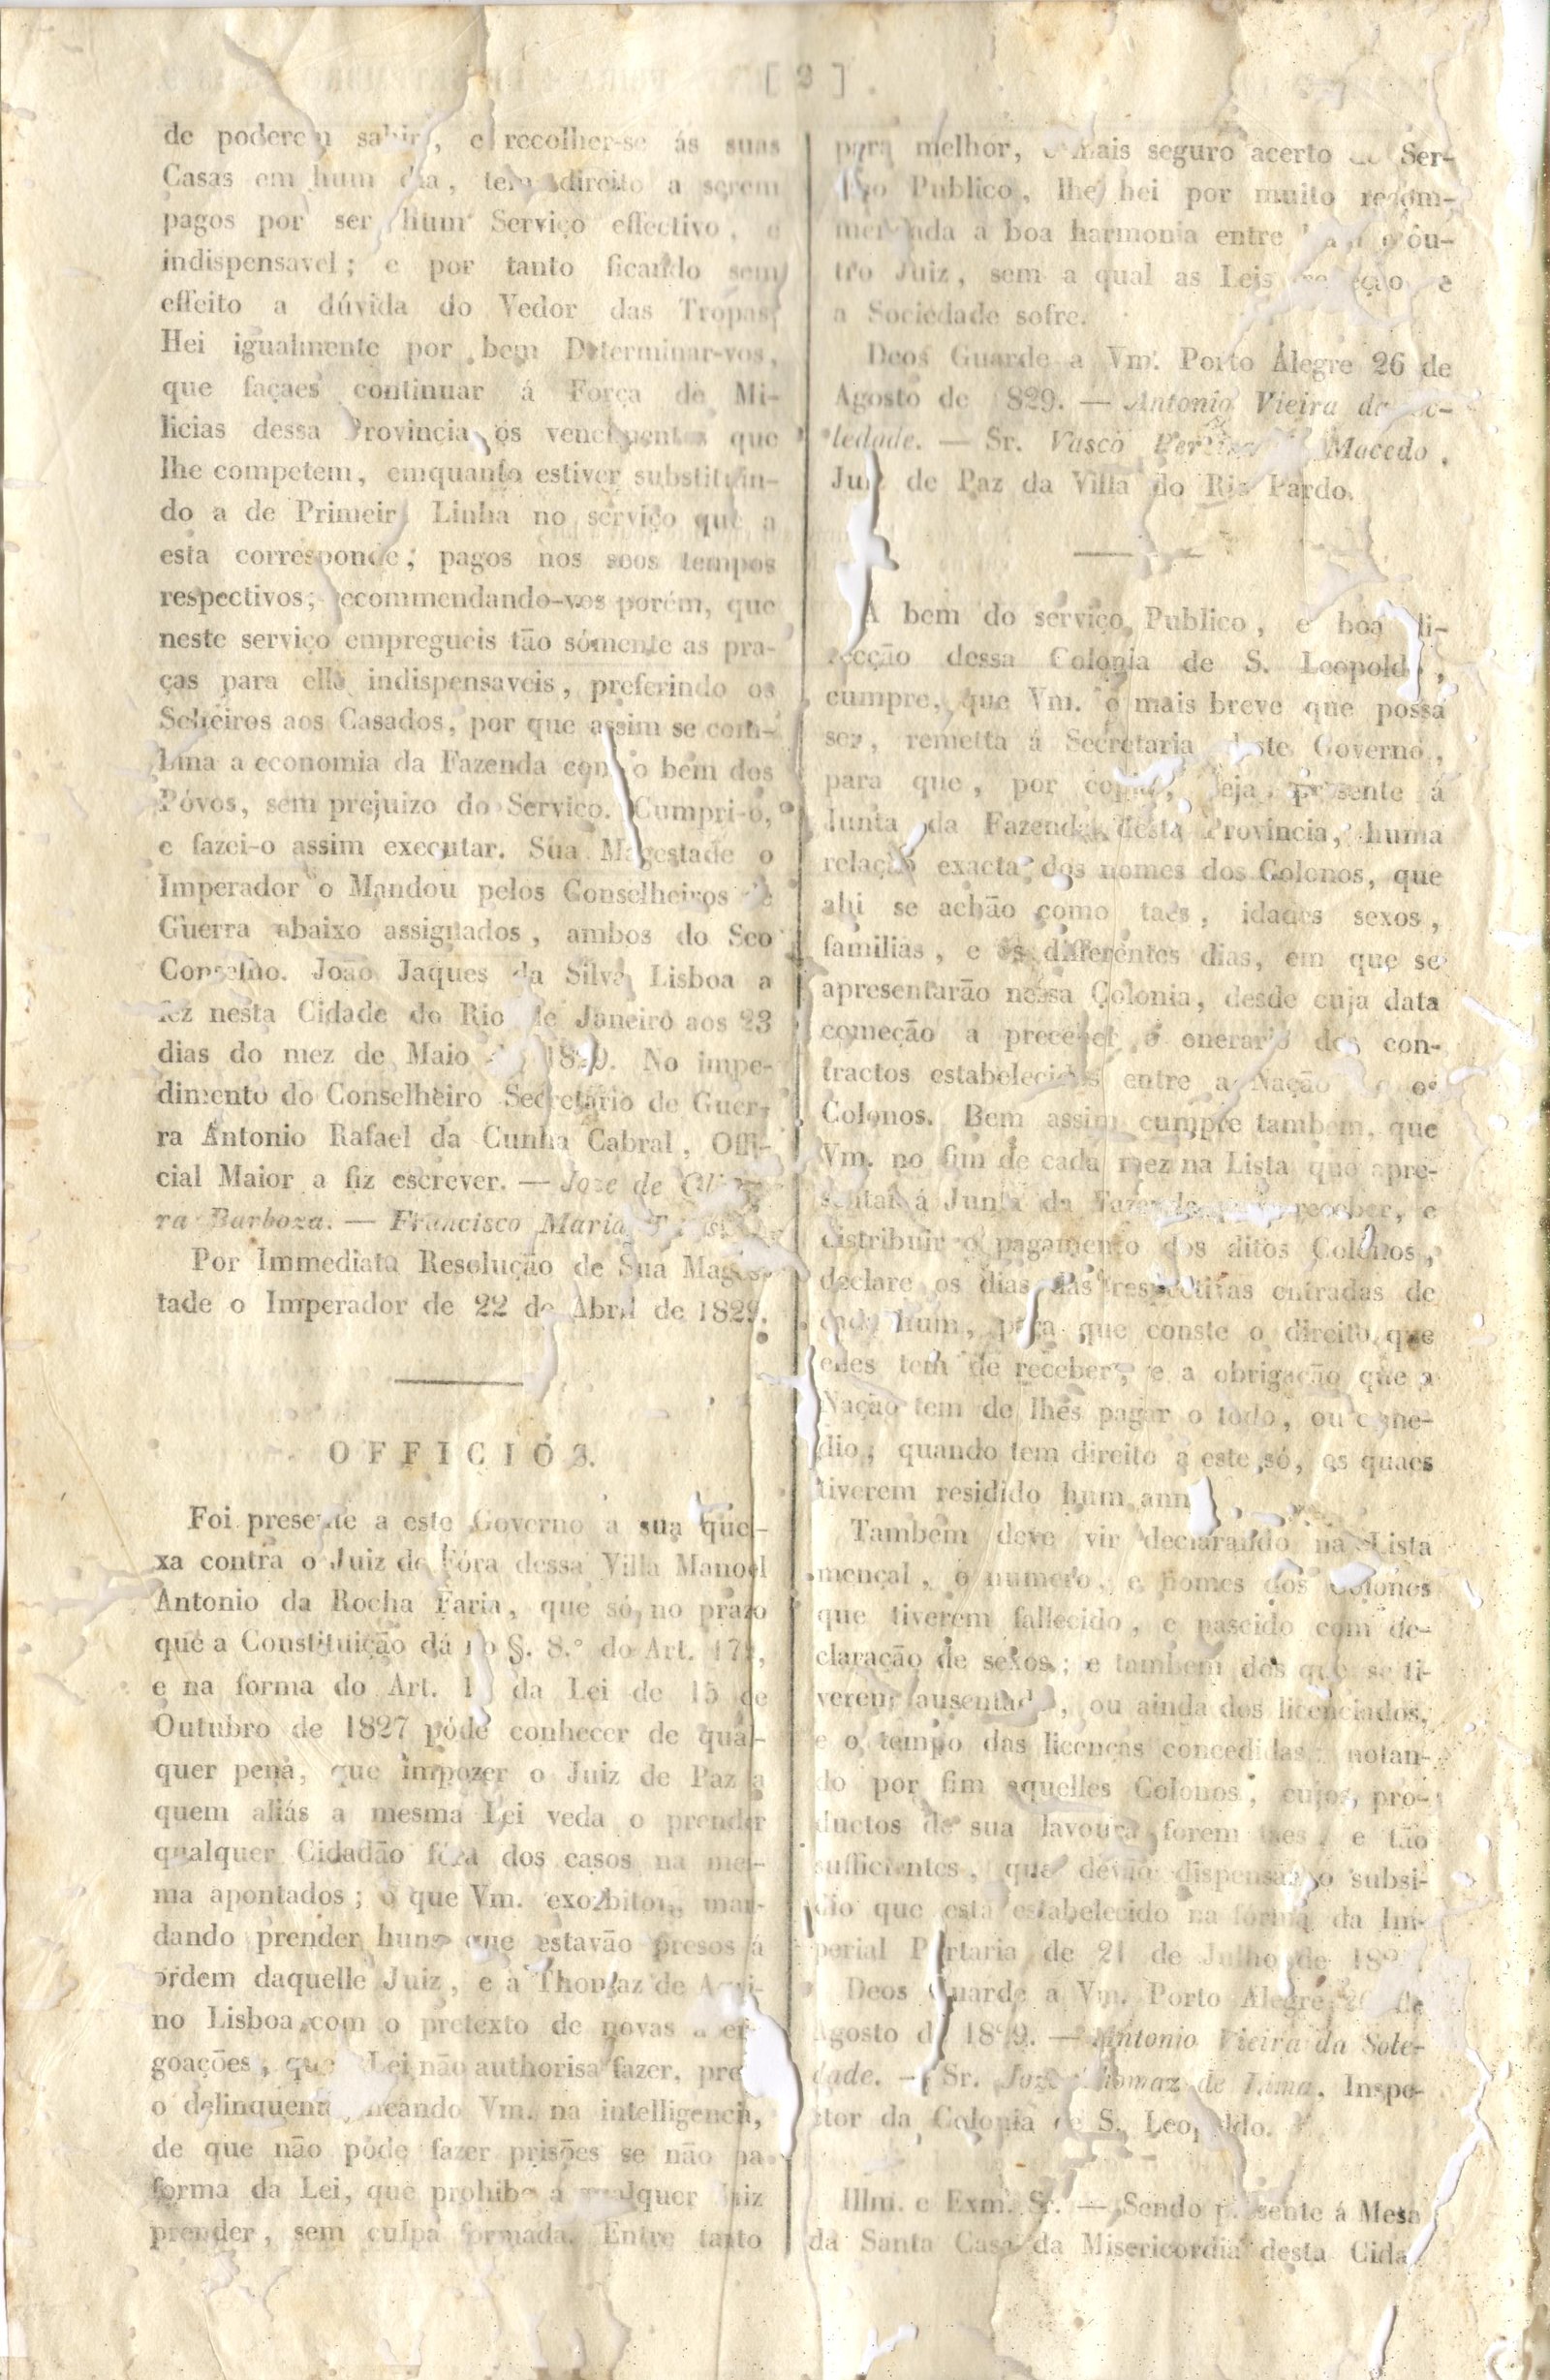 [ 2 ]
de poderem sahir, e recolher-se ás suas
Casas em hum dia, tem direito a serem
pagos por ser hum Serviço effectivo, e
indispensavel; e por tanto ficando sem
effeito a dúvida do Vedor das Tropas,
Hei igualmente por bem Determinar-vos,
que façaes continuar á Força de Mi-
licias dessa Provincia os vencimentos que
lhe competem, emquanto estiver substituin-
do a de Primeira Linha no serviço que a
esta corresponde; pagos nos seos tempos
respectivos; recommendando-vos porém, que
neste serviço empregueis tão sómente as pra-
ças para elle indispensaveis, preferindo os
Solteiros aos Casados, por que assim se com-
bina a economia da Fazenda com o bem dos
Póvos, sem prejuizo do Serviço. Cumpri-o,
e fazei-o assim executar. Sua Magestade o
Imperador o Mandou pelos Conselheiros de
Guerra abaixo assignados, ambos do Seo
Conselho. João Jaques da Silva Lisboa a
fez nesta Cidade do Rio de Janeiro aos 23
dias do mez de Maio de 1829. No impe-
dimento do Conselheiro Secretario de Guer-
ra Antonio Rafael da Cunha Cabral, Offi-
cial Maior a fiz escrever. — Joze de Olivei-
ra Barboza. — Francisco Maria
Por Immediata Resolução de Sua Mages-
tade o Imperador de 22 de Abril de 1829.
OFFICIOS.
Foi presente a este Governo a sua quei-
xa contra o Juiz de Fóra dessa Villa Manoel
Antonio da Rocha Faria, que só no prazo
que a Constituição dá no §. 8.º do Art. 179,
e na forma do Art. da Lei de 15 de
Outubro de 1827 póde conhecer de qual-
quer pena, que impozer o Juiz de Paz a
quem aliás a mesma Lei veda o prender
qualquer Cidadão fóra dos casos na mes-
ma apontados; o que Vm. exorbitou, man-
dando prender huns que estavão presos á
ordem daquelle Juiz, e a Thomaz de Aqui-
no Lisboa com o pretexto de novas aver-
goações, que a Lei não authorisa fazer, pre
o delinquente, ficando Vm. na intelligencia,
de que não póde fazer prisões se não na
forma da Lei, que prohibe a qualquer Juiz
prender, sem culpa formada. Entre tanto
para melhor, e mais seguro acerto do Ser-
viço Publico, lhe hei por muito recom-
mendada a boa harmonia entre hum e ou-
tro Juiz, sem a qual as Leis e
a Sociedade sofre.
Deos Guarde a Vm. Porto Alegre 26 de
Agosto de 1829. — Antonio Vieira da So-
ledade. — Sr. Vasco Macedo,
Juiz de Paz da Villa do Rio Pardo.
A bem do serviço Publico, e boa di-
recção dessa Colonia de S. Leopoldo,
cumpre, que Vm. o mais breve que possa
ser, remetta á Secretaria deste Governo,
para que, por copia, seja presente á
Junta da Fazenda desta Provincia, huma
relação exacta dos nomes dos Colonos, que
ahi se achão como taes, idades sexos,
familias, e os differentes dias, em que se
apresentarão nessa Colonia, desde cuja data
começão a preceber o onerario dos con-
tractos estabelecidos entre a Nação e os
Colonos. Bem assim cumpre tambem, que
Vm. no fim de cada mez na Lista que apre-
sentar á Junta da Fazenda para receber, e
distribuir o pagamento dos ditos Colonos,
declare os dias das respectivas entradas de
cada hum, para que conste o direito que
elles tem de receber, e a obrigação que a
Nação tem de lhes pagar o todo, ou o me-
dio, quando tem direito a este só, os quaes
tiverem residido hum anno.
Tambem deve vir declarando na Lista
mençal, o numero, e nomes dos Colonos
que tiverem fallecido, e nascido com de-
claração de sexos; e tambem dos que se ti-
verem ausentado, ou ainda dos licenciados,
e o tempo das licenças concedidas: notan-
do por fim aquelles Colonos, cujos pro-
ductos de sua lavoura forem taes, e tão
sufficientes, que devão dispensar o subsi-
dio que está estabelecido na fórma da Im-
perial Portaria de 21 de Julho de
Deos Guarde a Vm. Porto Alegre de
Agosto de 1829. — Antonio Vieira da Sole-
dade. — Sr. Joze Thomaz de Lima, Inspe-
ctor da Colonia de S. Leopoldo.
Illm. e Exm. Sr. — Sendo presente á Mesa
da Santa Casa da Misericordia desta Cida